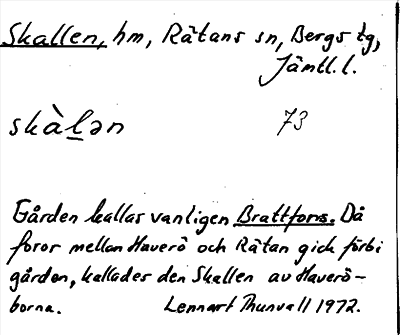 Skallen, hm, Rätans sn, Bergs tg,
Jämtl. l.
skàḻən 73
Gården kallas vanligen Brattfors. Då
foror mellan Haverö och Rätan gick förbi
gården, kallades den Skallen av Haverö-
borna. Lennart Thunvall 1972.